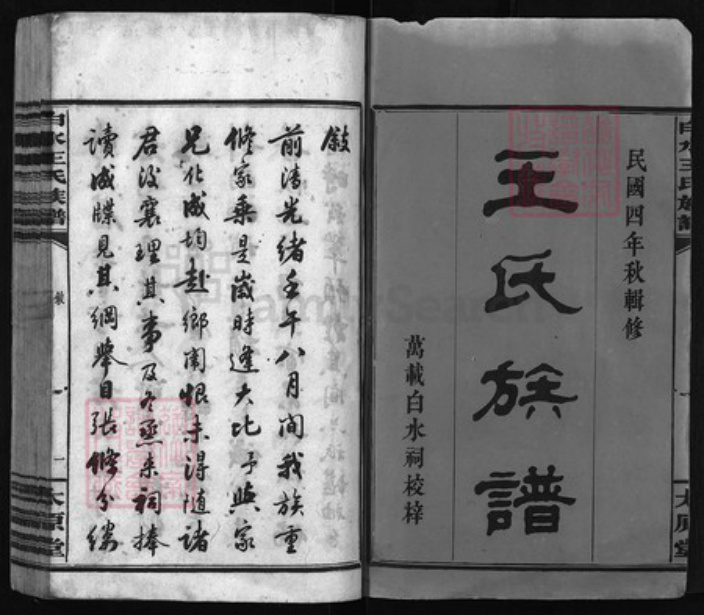 民國四年秋輯修
王氏族譜
萬載白水祠校梓
敍
前清光緒壬午八月間我族重
修家乘是歲時逢大比予與家
兄化成均赴鄉闈恨未得随諸
君後襄理其事及冬烝来祠捧
讀成牒見其綱舉目張條分縷
白水王氏族譜
敍
一
太原堂
白水王氏族譜
太原堂
FamilySearch